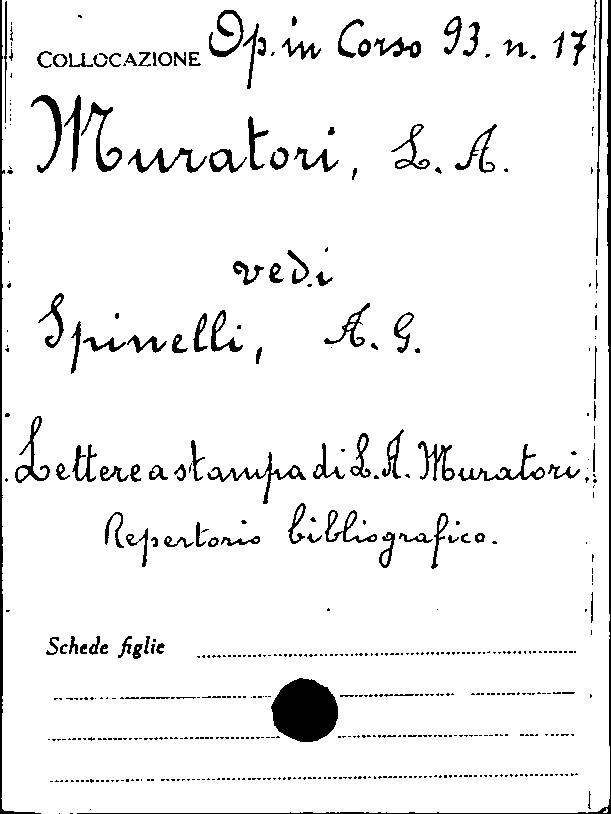 COLLOCAZIONE Op. in Corso 93. n. 17
Muratori, L. A.
vedi
Spinelli, A. G.
Lettere a stampa di L. A. Muratori.
Repertorio bibliografico.
Schede figlie